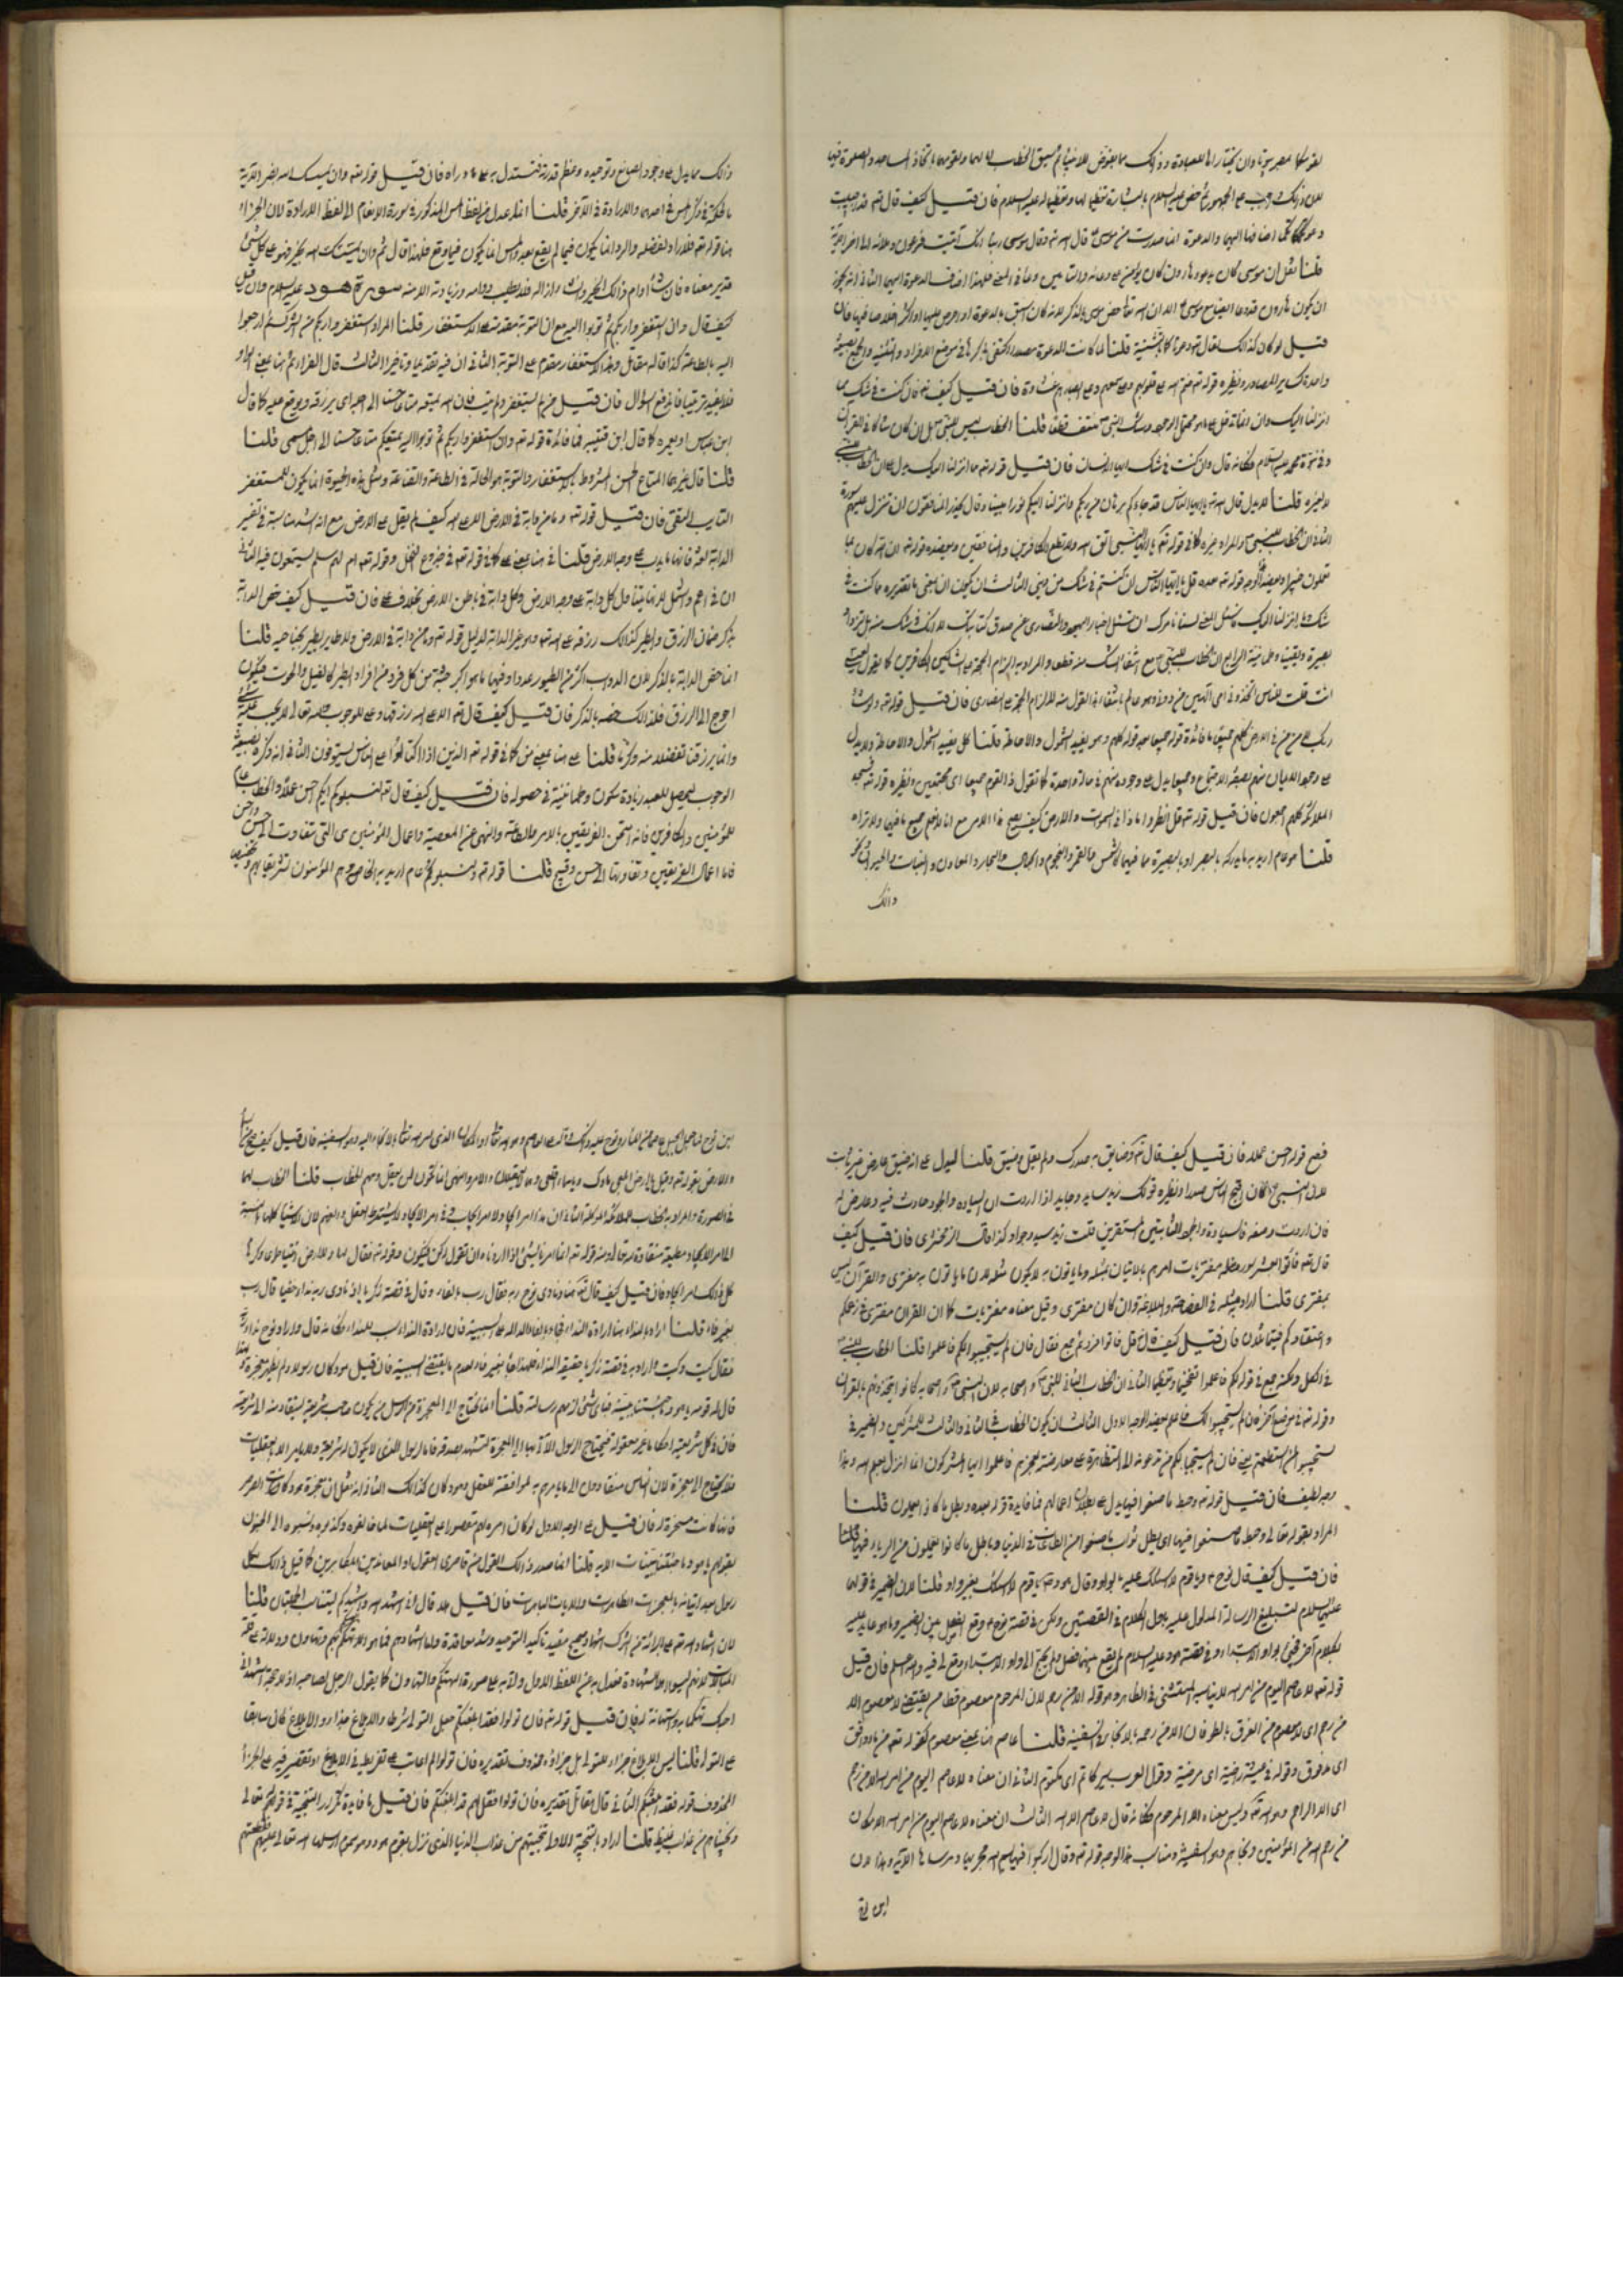 لقومكما بمصر بيوتا وان يختاراها للعبادة وذلك مما يفوض للانبياء ثم سيق الخطاب لهما ولقومهما باتخاذ المساجد والصلوة فيها
لان ذلك واجب على الجمهور ثم خص موسى عليه السلام بالبشارة تعظيما لها وتعظيما له عليه السلام فان قيل كيف قال تع قد اجيبت
دعوتكما اضافها اليهما والدعوة انما صدرت من موسى قال الله تع وقال موسى ربنا انك آتيت فرعون وملأه الى آخر الآية
قلنا نقل ان موسى كان يدعو وهارون كان يؤمن على دعائه والتأمين دعاء في المعنى فلهذا اضاف الدعوة اليهما الثاني انه يجوز
ان يكون هارون قد دعا ايضا مع موسى الا ان الله تعا خص موسى بالذكر لانه كان اسبق بالدعوة او احرص عليها او اكثر اخلاصا فيها فان
قيل لو كان كذلك لقال تع دعوتاكما بالتثنية قلنا لما كانت الدعوة مصدرا اكتفى بذكرها في موضع الافراد والتثنية والجمع بصيغة
واحدة كسائر المصادر ونظيره قوله تع ختم الله على قلوبهم وعلى سمعهم وعلى ابصارهم غشاوة فان قيل كيف قال تع فان كنت في شك مما
انزلنا اليك وان انما تدخل على ما هو محتمل الوجود وشك النبي منتف قطعا قلنا الخطاب ليس للنبي بل لمن كان شاكا في القران
وفي نبوة محمد عليه السلام فكانه قال وان كنت في شك ايها الانسان فان قيل قوله تع مما انزلنا اليك يدل على ان الخطاب للنبي
لا لغيره قلنا لا يدل قال الله تع يا ايها الناس قد جاءكم برهان من ربكم وانزلنا اليكم نورا مبينا وقال يحذر المنافقون ان تنزل عليهم سورة
الثاني ان الخطاب للنبي والمراد غيره كما في قوله تع يا ايها النبي اتق الله ولا تطع الكافرين والمنافقين ويعضده قوله تع ان الله كان بما
تعملون خبيرا ويعضد هذا الوجه قوله تع بعده قل يا ايها الناس ان كنتم في شك من ديني الثالث ان يكون ان بمعنى ما تقديره ما كنت في
شك مما انزلنا اليك فاسئل المعنى لسنا نامرك ان تسئل احبار اليهود والنصارى عن صدق كتابك لانك في شك منه بل لتزداد
بصيرة ويقينا وطمانينة الرابع ان الخطاب للنبي مع انتفاء الشك منه قطعا والمراد به الزام الحجة على الشاكين الكافرين كما يقول لعيسى
ءانت قلت للناس اتخذوني وامي الهين من دون الله وهو عالم بانتفاء هذا القول منه لالزام الحجة على النصارى فان قيل قوله تع ولو شاء
ربك لامن من في الارض كلهم جميعا ما فائدة قوله جميعا بعد قوله كلهم وهو يفيد الشمول والاحاطة قلنا كل يفيد الشمول والاحاطة ولا يدل
على وجود الايمان منهم بصفة الاجتماع وجميعا يدل على وجوده منهم في حالة واحدة كما تقول جاءني القوم جميعا اي مجتمعين ونظيره قوله تع فسجد
الملائكة كلهم اجمعون فان قيل قوله تع قل انظروا ماذا في السموات والارض كيف يصح هذا الامر مع انا لا نعلم جميع ما فيها ولا نراه
قلنا هو عام اريد به ما يدركه بالبصر او بالبصيرة مما فيهما كالشمس والقمر والنجوم والجبال والبحار والمعادن والنبات والحيوان ونحو
ذلك
ذلك مما يدل على وجود الصانع وتوحيده وعظم قدرته فيستدل به على ما وراءه فان قيل قوله تع وان يمسسك الله بضر الآية
ما الحكمة في ذكر المس في احدهما والارادة في الآخر قلنا انما عدل من لفظ المس المذكور في سورة الانعام الى لفظ الارادة لان الجزاء
هنا قوله تع فلا راد لفضله والرد انما يكون فيما لم يقع بعد والمس انما يكون فيما وقع فلهذا قال ثم وان يمسسك الله بخير فهو على كل شئ
قدير معناه فان شاء ادام ذلك الخير وان شاء ازاله فلا يطلب دوامه وزيادته الا منه سورة هود عليه السلام وان قيل
كيف قال وان استغفروا ربكم ثم توبوا اليه مع ان التوبة مقدمة على الاستغفار قلنا المراد استغفروا ربكم من الشرك ثم ارجعوا
اليه بالطاعة كذا قاله مقاتل وهذا الاستغفار مقدم على التوبة الثاني ان فيه تقديما وتاخيرا الثالث قال الفراء ثم هنا بمعنى الواو
فلا يفيد ترتيبا فاندفع السؤال فان قيل من لم يستغفر ولم يتب فان الله يمتعه متاعا حسنا الى اجله اي يرزقه ويوسع عليه كما قال
ابن عباس او يعمره كما قال ابن قتيبة فما فائدة قوله تع وان استغفروا ربكم ثم توبوا اليه يمتعكم متاعا حسنا الى اجل مسمى قلنا
قلنا قال غيرهما المتاع الحسن المشروط بالاستغفار والتوبة هو الحياة في الطاعة والقناعة ومثل هذه الحيوة انما يكون للمستغفر
التايب التقي فان قيل قوله تع وما من دابة في الارض الا على الله كيف لم يقل على الارض مع انه اشد مناسبة في تفسير
الدابة لغة فانها ما يدب على وجه الارض قلنا في هنا بمعنى على كما في قوله تع في جذوع النخل وقوله تع ام لهم سلم يستمعون فيه الثاني
ان في اعم واشمل لانها يتناول كل دابة على وجه الارض وكل دابة في باطن الارض بخلاف على فان قيل كيف خص الدابة
بذكر ضمان الرزق والطير كذلك رزقه على الله تع وهو غير الدابة بدليل قوله تع وما من دابة في الارض ولا طائر يطير بجناحيه قلنا
انما خص الدابة بالذكر لان الدواب اكثر من الطيور عددا وفيها ما هو اكبر جثة من كل فرد من افراد الطير كالفيل والحوت فيكون
احوج الى الرزق فلذلك خصه بالذكر فان قيل كيف قال تع الا على الله رزقها وعلى للوجوب والله تعالى لا يجب عليه شئ
وانما يرزقنا تفضلا منه وكرما قلنا على هنا بمعنى من كما في قوله تع الذين اذا اكتالوا على الناس يستوفون الثاني انه ذكره بصيغة
الوجوب ليحصل للعبد زيادة سكون وطمانينة في حصوله فان قيل كيف قال تع ليبلوكم ايكم احسن عملا والخطاب عام
للمؤمنين والكافرين فانه امتحن الفريقين بالامر بالطاعة والنهي عن المعصية واعمال المؤمنين هي التي تتفاوت الى حسن واحسن
فاما اعمال الفريقين وتفاوتها الى حسن وقبيح قلنا قوله تع ليبلوكم عام اريد به الخاص وهم المؤمنون تشريفا لهم وتخصيصا
فصح قوله احسن عملا فان قيل كيف قال تع وضائق به صدرك ولم يقل وضيق قلنا ليدل على انه ضيق عارض غير ثابت
لان النبي كان افسح الناس صدرا ونظيره قولك زيد سايد وجايد اذا اردت ان السيادة والجود حادث فيه وعارض له
فان اردت وصفه بالسيادة والجود الثابتين المستقرين قلت زيد سيد وجواد كذا قال الزمخشري فان قيل كيف
قال تع فأتوا بعشر سور مثله مفتريات امرهم بالاتيان بمثله وما ياتون به لا يكون مثله لان ما ياتون به مفترى والقرآن ليس
بمفترى قلنا اراد مثله في الفصاحة والبلاغة وان كان مفترى وقيل معناه مفتريات كما ان القران مفترى في زعمكم
واعتقادكم فيتماثلان فان قيل كيف قال قل فاتوا افرد ثم جمع فقال فان لم يستجيبوا لكم فاعلموا قلنا الخطاب للنبي
في الكل ولكنه جمع في قوله لكم فاعلموا تفخيما وتعظيما الثاني ان الخطاب الثاني للنبي واصحابه لان النبي واصحابه كانوا يتحدونهم بالقران
وقوله تع في موضع آخر فان لم يستجيبوا لك فاعلم يعضد الوجه الاول الثالث ان يكون الخطاب في الثاني والثالث للمشركين والضمير في
يستجيبوا لمن استطعتم يعني فان لم يستجب لكم من تدعونه الى المظاهرة على معارضته لعجزهم فاعلموا ايها المشركون انما انزل بعلم الله وهذا
وجه لطيف فان قيل قوله تع وحبط ما صنعوا فيها يدل على بطلان اعمالهم فما فايدة قوله بعده وبطل ما كانوا يعملون قلنا
المراد بقوله تعالى وحبط ما صنعوا فيها اي بطل ثواب ما صنعوا من الطاعات في الدنيا وباطل ما كانوا يعملون من الرياء فيها قلنا
فان قيل كيف قال نوح ويا قوم لا اسئلكم عليه بالواو وقال هود يا قوم لا اسئلكم بغير واو قلنا لان الضمير في قولهما
عليهما السلام لتبليغ الرسالة المدلول عليه باول الكلام في القصتين ولكن في قصة نوح وقع الفصل بين الضمير وما هو عايد اليه
بكلام آخر فجئ بواو الابتداء وفي قصة هود عليه السلام لم يقع بينهما فصل ولم يحتج الى واو الابتداء وقع لي فيه والله اعلم فان قيل
قوله تع لا عاصم اليوم من امر الله لا يناسبه المستثنى في الظاهر وهو قوله الا من رحم لان المرحوم معصوم فظاهره يقتضي لا معصوم الا
من رحم اي لا معصوم من الغرق بالطوفان الا من رحمه بالانجاء في السفينة قلنا عاصم هنا بمعنى معصوم كقوله تع من ماء دافق
اي مدفوق وقوله في عيشة راضية اي مرضية وقول العرب سر كاتم اي مكتوم الثاني ان معناه لا عاصم اليوم من امر الله الا من رحم
اي الا الراحم وهو الله تع وليس معناه الا المرحوم فكانه قال لا عاصم الا الله الثالث ان معناه لا عاصم اليوم من امر الله الا مكان
من رحم الله من المؤمنين ونجاهم وهو السفينة ومناسب هذا الوجه قوله تع وقال اركبوا فيها بسم الله مجريها ومرساها الآية وهذا لان
ابن نوح
ابن نوح لما جعل الجبل عاصما من الماء رد نوح عليه ذلك ودله على العاصم وهو الله تعالى او المكان الذي امر الله تعا بالالتجاء اليه وهو السفينة فان قيل كيف صح امر السماء
والارض بقوله تع وقيل يا ارض ابلعي ماءك ويا سماء اقلعي وهما لا يعقلان والامر والنهي انما يكون لمن يعقل ويفهم الخطاب قلنا الخطاب لهما
في الصورة والمراد به الخطاب للملائكة الموكلة الثاني ان هذا امر ايجاد لا امر ايجاب وفي امر الايجاد لا يشترط العقل والفهم لان الاشياء كلها بالنسبة
الى امر الايجاد مطيعة منقادة لله تعالى ومنه قوله تع انما امرنا لشئ اذا اردناه ان نقول له كن فيكون وقوله تع فقال لها وللارض ائتيا طوعا او كرها
كل ذلك امر ايجاد فان قيل كيف قال تع هنا ونادى نوح ربه فقال رب بالفاء وقال في قصة زكريا اذ نادى ربه نداء خفيا قال رب
بغير فاء قلنا اراد بالنداء هنا ارادة النداء فجاء بالفاء الدالة على السببية فان ارادة النداء سبب للنداء فكانه قال واراد نوح نداء ربه
فقال كيت وكيت واراد به في قصة زكريا حقيقة النداء فلهذا جاء بغير فاء لعدم ما يقتضي السببية فان قيل هود كان رسولا ولم يظهر معجزة ولهذا
قال له قومه يا هود ما جئتنا ببينة فباي شئ لزمهم رسالته قلنا انما يحتاج الى المعجزة من الرسل من يكون صاحب شريعة لينقاد امته الى شريعته
فان في كل شريعة احكاما غير معقولة فيحتاج الرسول الآتي بها الى المعجزة لتشهد بصدقه فاما الرسول الذي لا يكون له شريعة ولا يامر الا بالعقليات
فلا يحتاج الى معجزة لان الناس ينقادون الى ما يامرهم به لموافقته للعقل وهود كان كذلك الثاني انه نقل ان معجزة هود كانت الريح الصرصر
فانها كانت مسخرة له فان قيل على الوجه الاول لو كان امره لهم مقصورا على العقليات لما خالفوه وكذبوه ونسبوه الى الجنون
بقولهم يا هود ما جئتنا ببينات الاية قلنا انما صدر ذلك القول من قاصري العقول او المعاندين المكابرين كما قيل ذلك لكل
رسول بعد اتيانه بالمعجزات الظاهرات والايات الباهرات فان قيل هلا قال اني اشهد الله واشهدكم ليتناسب الجملتان قلنا
لان اشهاد الله تع على البراءة من الشرك اشهاد صحيح مفيد تاكيد التوحيد وشد معاقدة واما اشهادهم فما هو الا تهكم بهم وتهاون ودلالة على قلة
المبالات لانهم ليسوا اهلا للشهادة فعدل به عن اللفظ الاول واتى به على صورة التهكم والتهاون كما يقول الرجل لصاحبه اذا لاحاه اشهد اني
احبك تهكما به واستهانة له فان قيل قوله تع فان تولوا فقد ابلغتكم جعل التولي شرطا والابلاغ جزاء والابلاغ كان سابقا
على التولي قلنا ليس الابلاغ جزاء للتولي بل جزاؤه محذوف تقديره فان تولوا لم اعاتب على تفريط في الابلاغ او تقصير فيه على الجزاء
المحذوف قوله فقد ابلغتكم الثاني قال مقاتل تقديره فان تولوا فقل لهم قد ابلغتكم فان قيل ما فايدة تكرار التنجية في قوله تعالى
ونجيناهم من عذاب غليظ قلنا اراد بالتنجية الاولى تنجيتهم من عذاب الدنيا الذي نزل بقوم هود وهو سموم ارسلها الله تعالى عليهم فقطعتهم